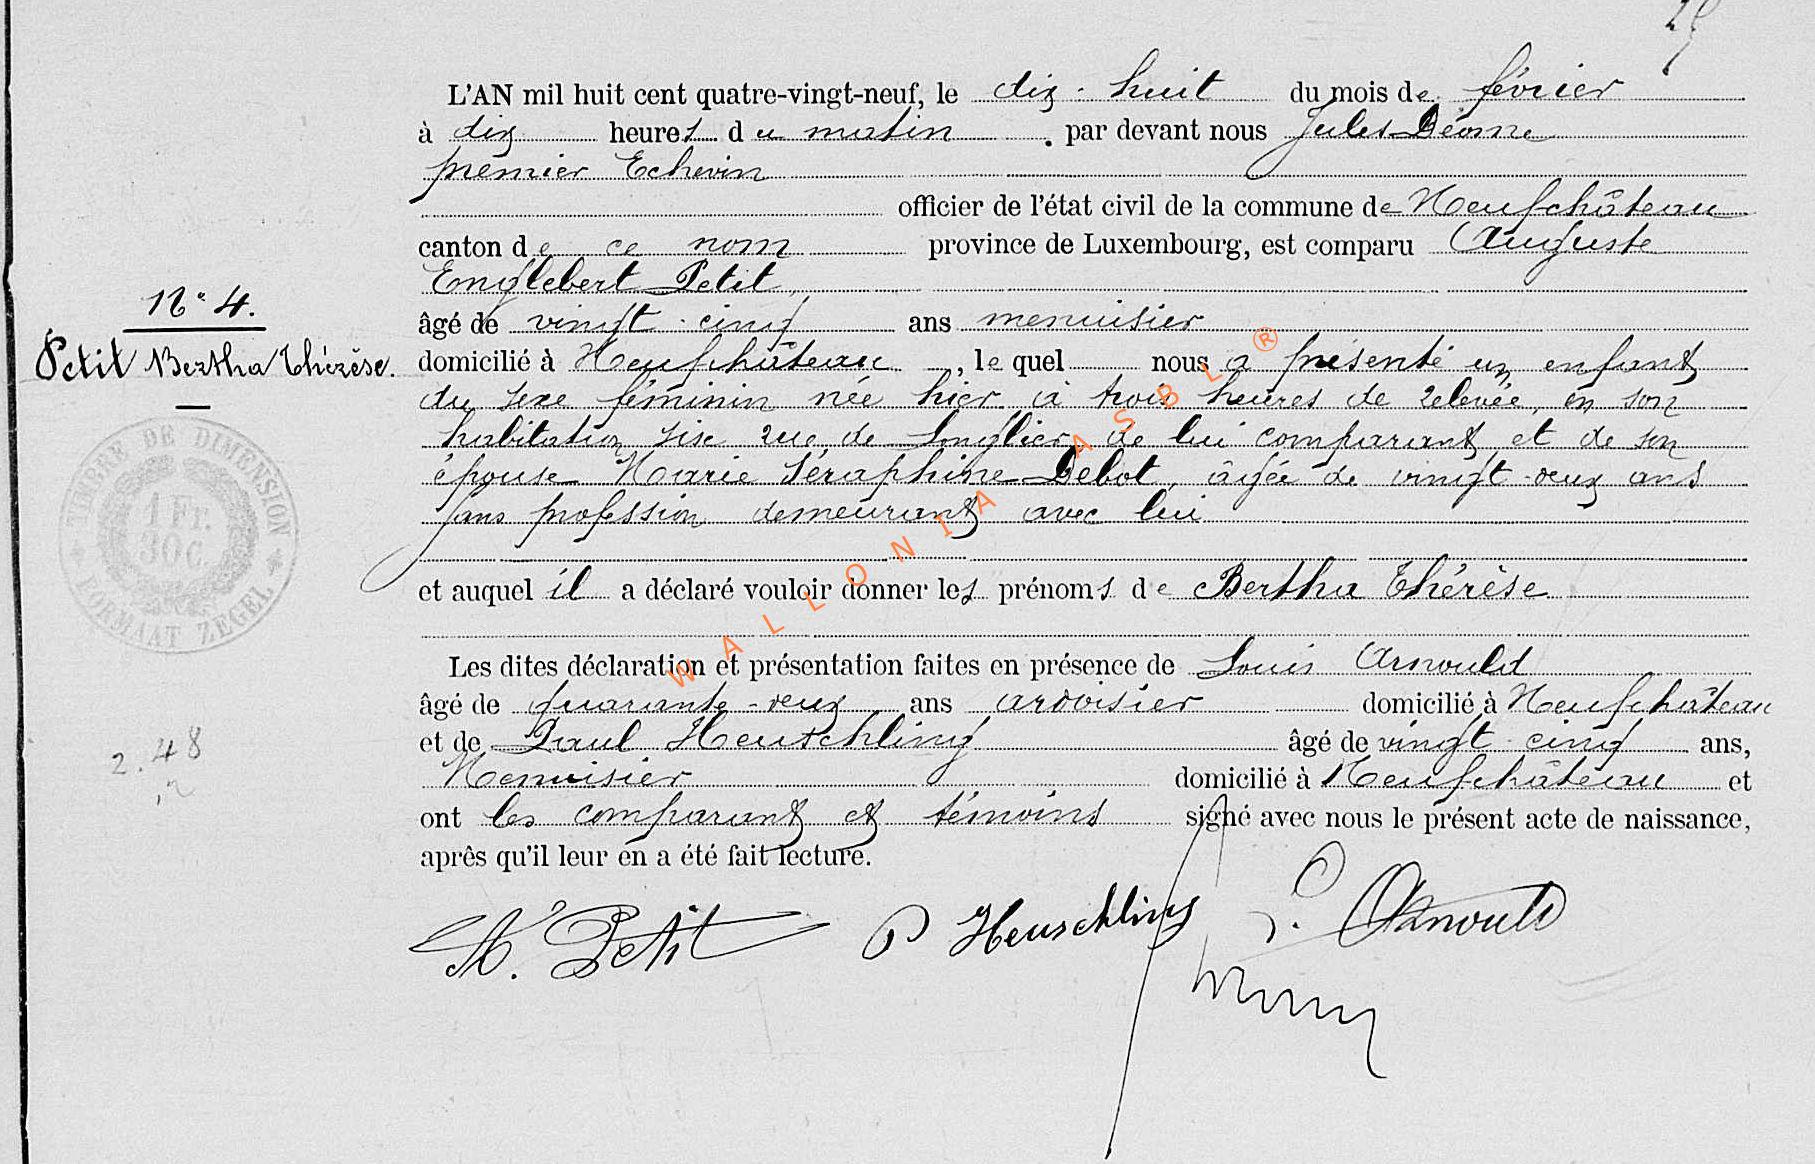 L'AN mil huit cent quatre-vingt-neuf, le dix-huit du mois de février
à dix heures du matin. par devant nous Jules
premier Echevin
officier de l'état civil de la commune de Neufchâteau
canton de ce nom province de Luxembourg, est comparu Auguste
Englebert Petit,
N° 4.
âgé de vingt-cinq ans menuisier
Petit Bertha Thérèse.
domicilié à Neufchâteau, lequel nous a présenté un enfant
du sexe féminin née hier à trois heures de relevée, en son
habitation sise rue de Longlier, de lui comparant et de son
épouse Marie Séraphine Debot, âgée de vingt-deux ans
sans profession demeurant avec lui
TIMBRE DE DIMENSION
1 FR.
30 C.
FORMAAT ZEGEL
et auquel il a déclaré vouloir donner les prénoms de Bertha Thérèse
Les dites déclaration et présentation faites en présence de Louis Arnould
âgé de quarante-deux ans ardoisier domicilié à Neufchâteau
et de Paul Heuschling âgé de vingt-cinq ans,
Menuisier domicilié à Neufchâteau et
2.48
ont les comparant et témoins signé avec nous le présent acte de naissance,
après qu'il leur en a été fait lecture.
A. Petit P Heuschling L. Arnould
WALLONIA ASBL ®